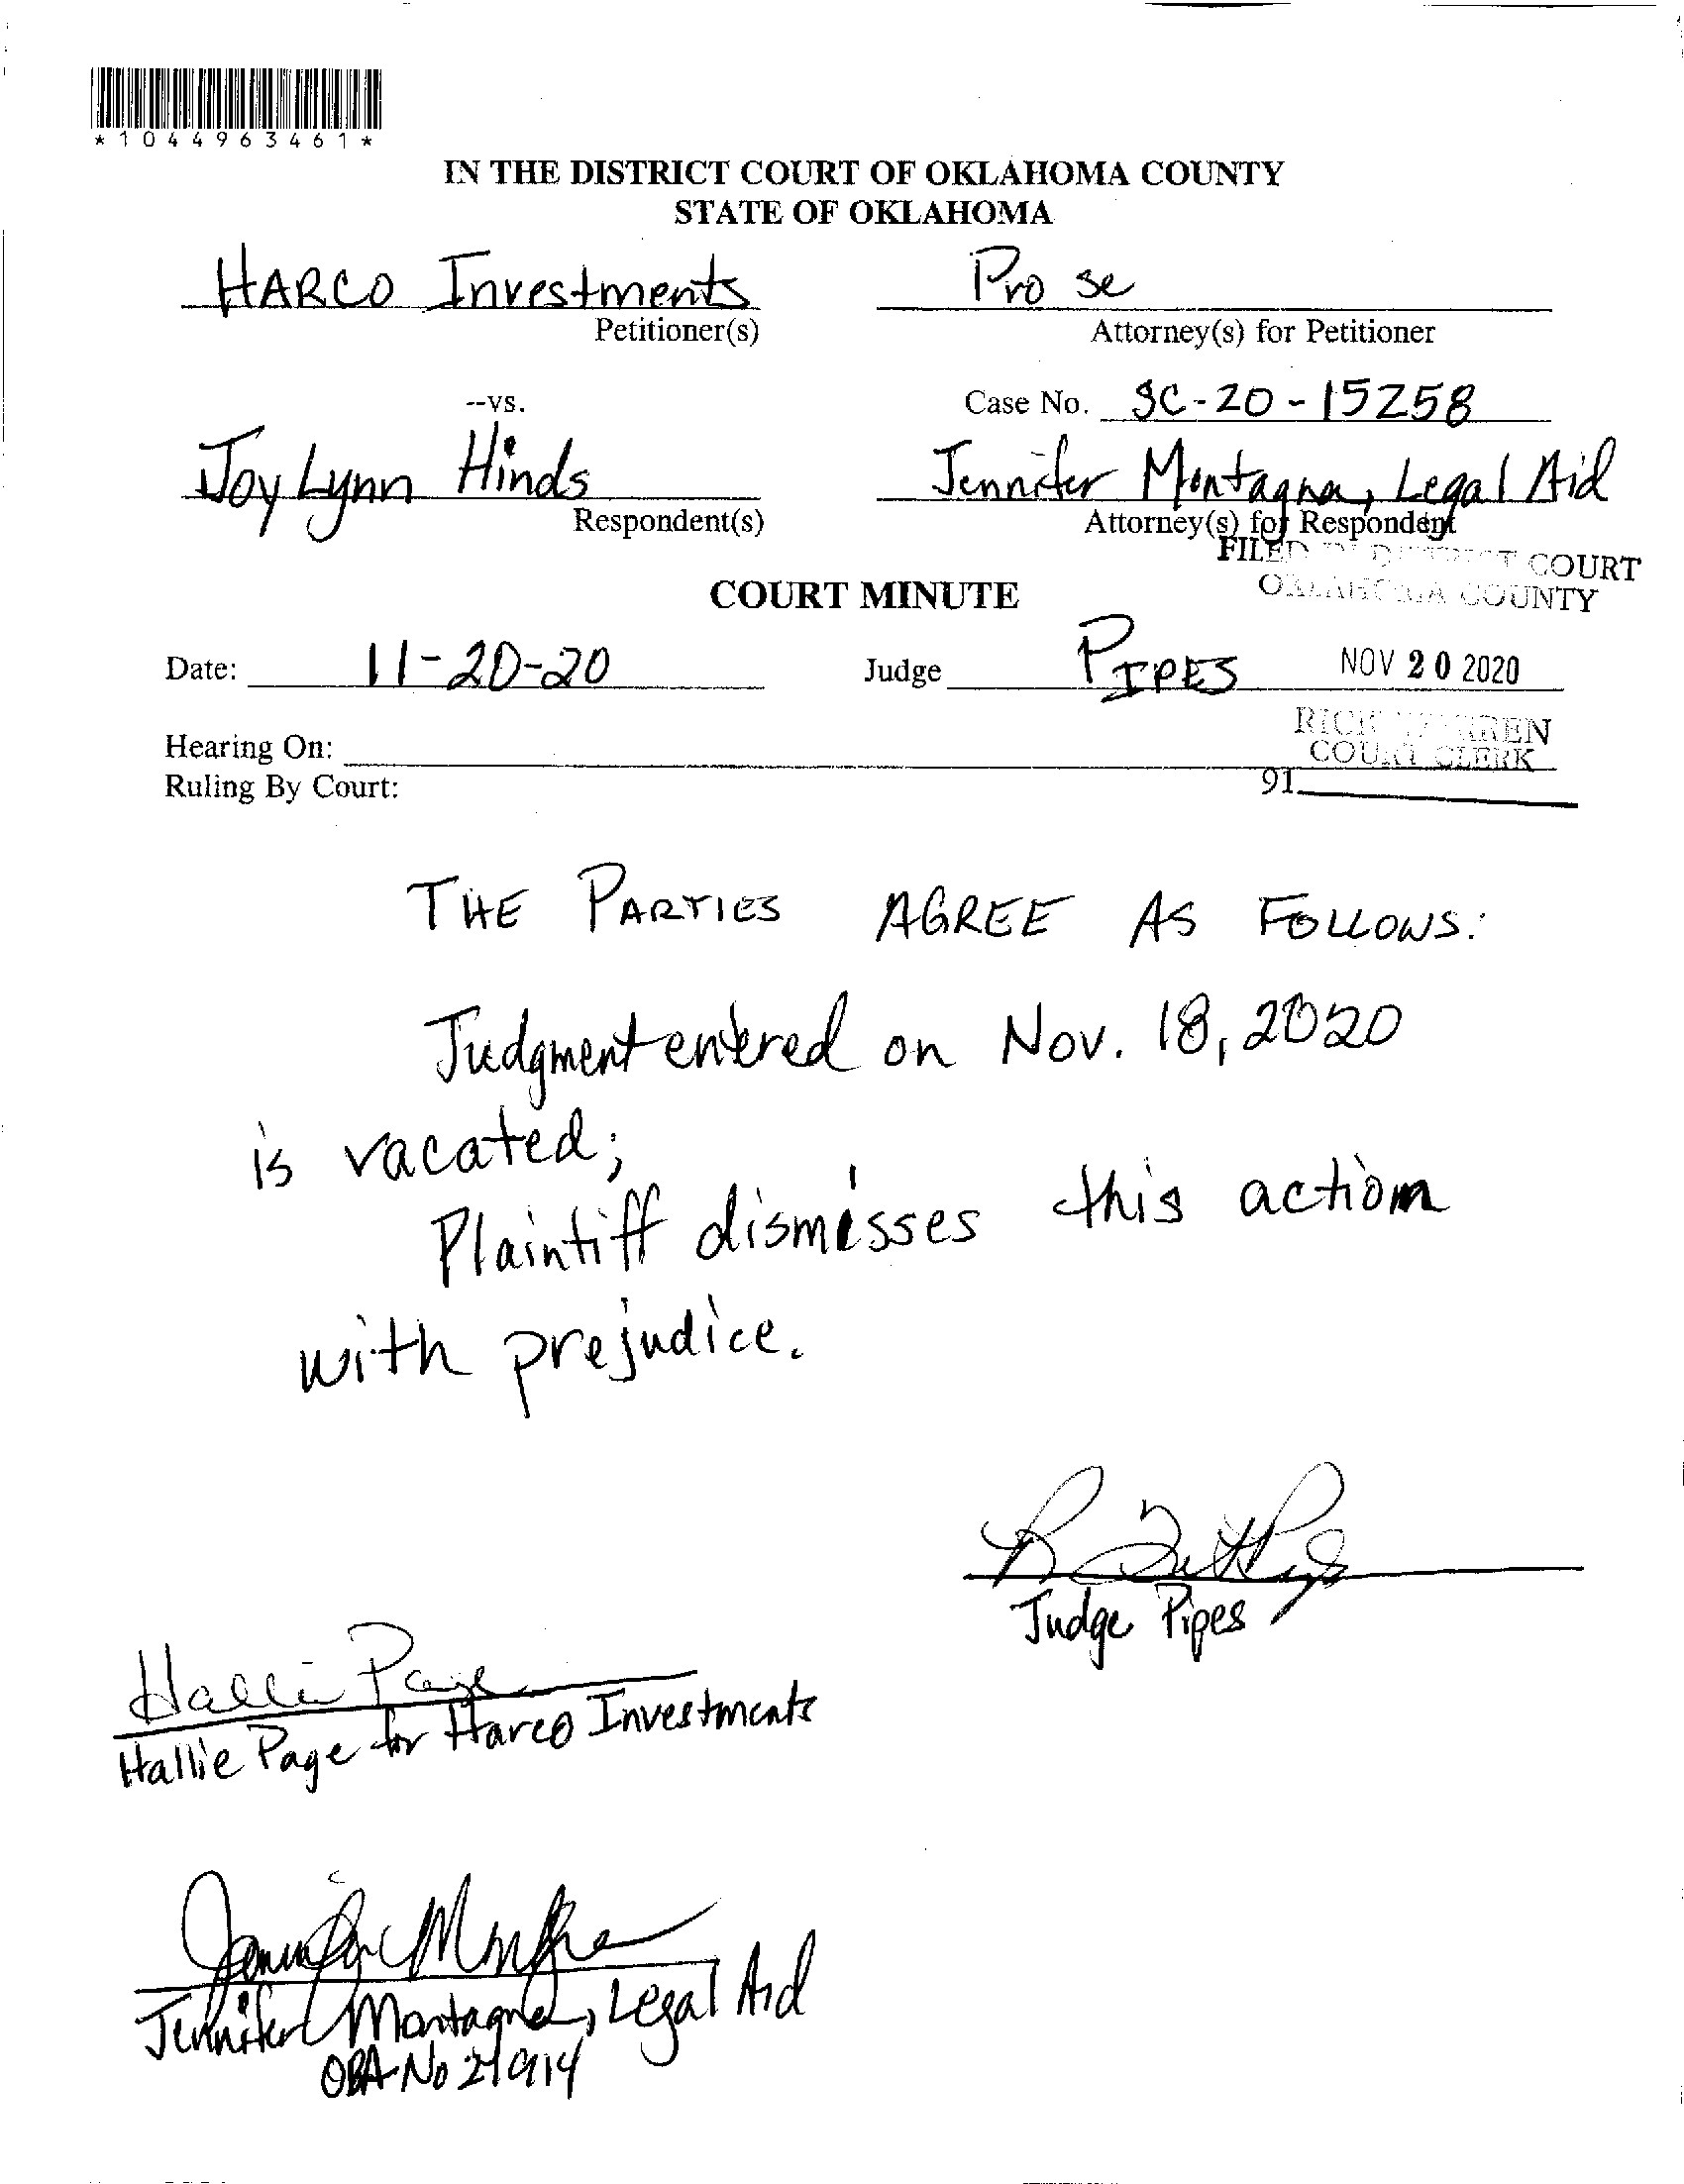 *1044963461*
IN THE DISTRICT COURT OF OKLAHOMA COUNTY
STATE OF OKLAHOMA
HARCO Investments
Petitioner(s)
Pro se
Attorney(s) for Petitioner
--vs.
Case No. SC-20-15258
Joy Lynn Hinds
Respondent(s)
Jennifer Montagna, Legal Aid
Attorney(s) for Respondent
FILED IN DISTRICT COURT
OKLAHOMA COUNTY
COURT MINUTE
Date: 11-20-20
Judge PIPES
NOV 20 2020
RICK WARREN
COURT CLERK
Hearing On:
91
Ruling By Court:
THE PARTIES AGREE AS FOLLOWS:
Judgment entered on Nov. 18, 2020
is vacated;
Plaintiff dismisses this action
with prejudice.
Judge Pipes
Hallie Page
Hallie Page for Harco Investments
Jennifer Montagna, Legal Aid
OBA No 21914